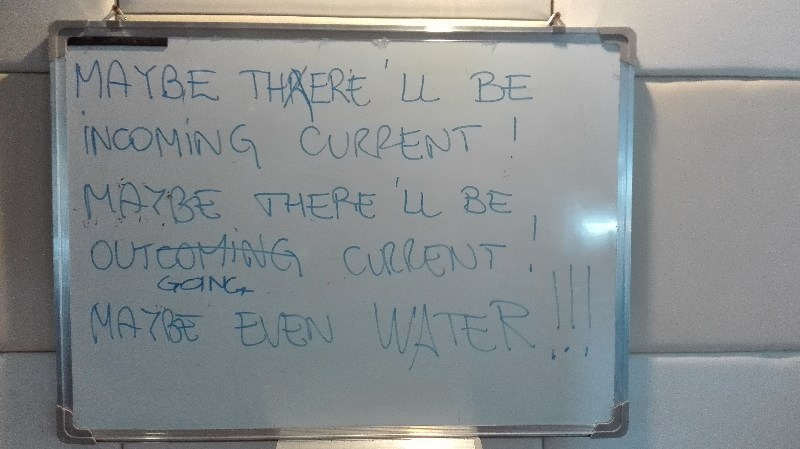 MAYBE THERE'LL BE
INCOMING CURRENT!
MAYBE THERE'LL BE
OUTCOMING CURRENT!
GOING
MAYBE EVEN WATER!!!